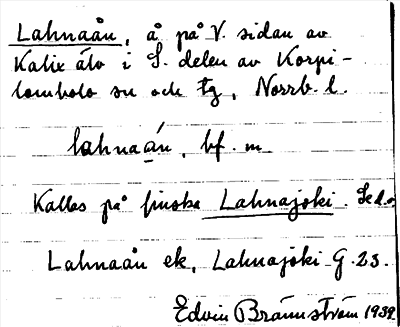 Lahnaån, å på V. sidan av
Kalix älv i S. delen av Korpi-
lombolo sn och tg, Norrb. l.
lahnaån, bf. m
Kallas på finska Lahnajoki. Se d.o
Lahnaån ek, Lahnajoki G. 23.
Edvin Brännström 1939